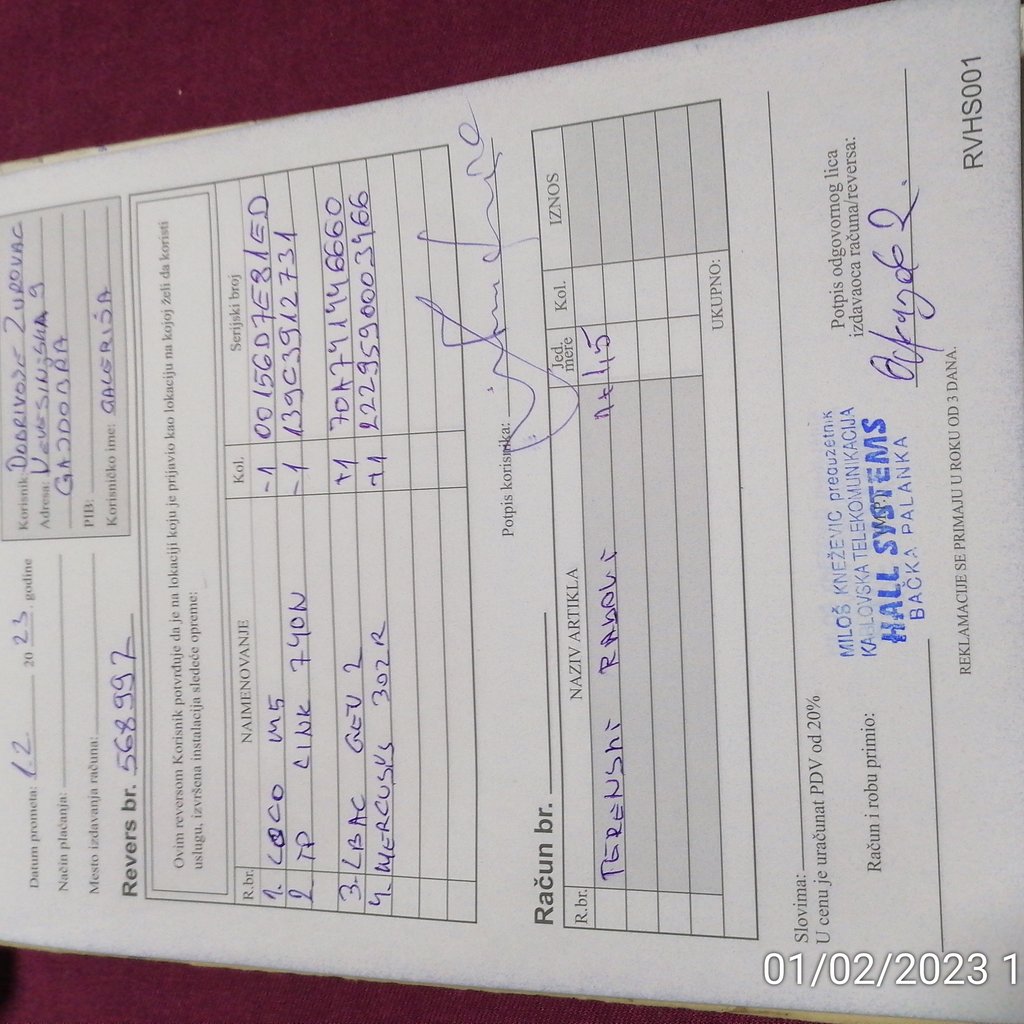 Datum prometa: 1.2 2023. godine
Način plaćanja:
Mesto izdavanja računa:
Korisnik: DOBRIVOJE ŽUROVAC
Adresa: NEVESINJSKA 9
GAJDOBRA
PIB:
Korisničko ime: GALERIŠA
Revers br. 568997
Ovim reversom Korisnik potvrđuje da je na lokaciji koju je prijavio kao lokaciju na kojoj želi da koristi
uslugu, izvršena instalacija sledeće opreme:
R.br. NAIMENOVANJE Kol. Serijski broj
1. LOCO M5 -1 00156D7E81ED
2. TP LINK 740N -1 139C3912731
3. LBAC GEN 2 +1 70A741446660
4. MERCUSYS 302R +1 2229590003466
Potpis korisnika:
Račun br.
R.br. NAZIV ARTIKLA Jed. mere Kol. IZNOS
TERENSKI RADOVI 1+1,5
UKUPNO:
Slovima:
U cenu je uračunat PDV od 20%
Račun i robu primio:
MILOŠ KNEŽEVIĆ preduzetnik
KABLOVSKA TELEKOMUNIKACIJA
HALL SYSTEMS
BAČKA PALANKA
Potpis odgovornog lica
izdavaoca računa/reversa:
REKLAMACIJE SE PRIMAJU U ROKU OD 3 DANA.
RVHS001
01/02/2023 1